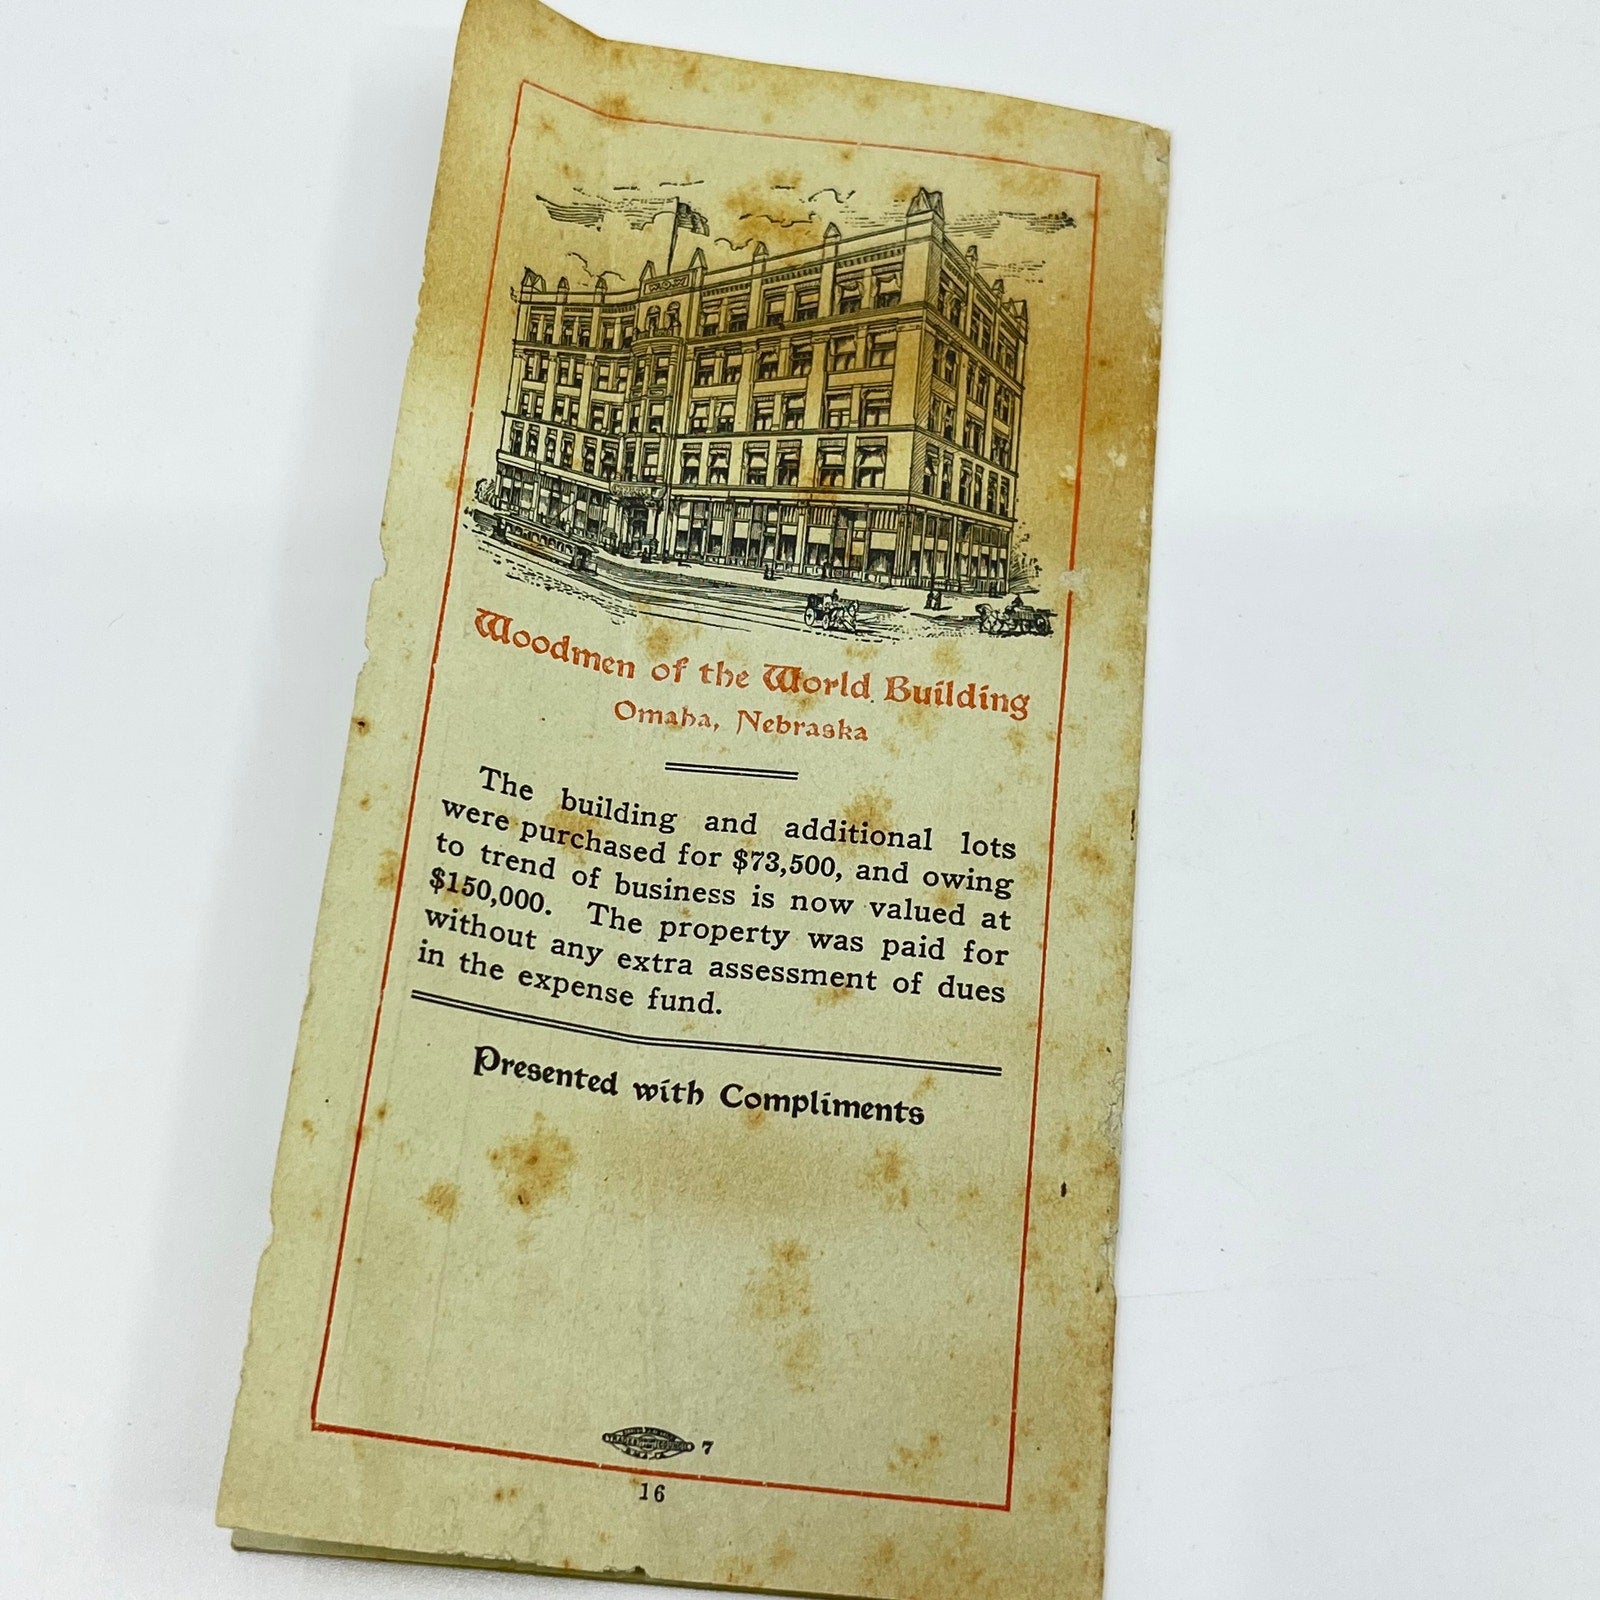 W.O.W.
Woodmen of the World Building
Omaha, Nebraska
The building and additional lots
were purchased for $73,500, and owing
to trend of business is now valued at
$150,000. The property was paid for
without any extra assessment of dues
in the expense fund.
Presented with Compliments
7
16